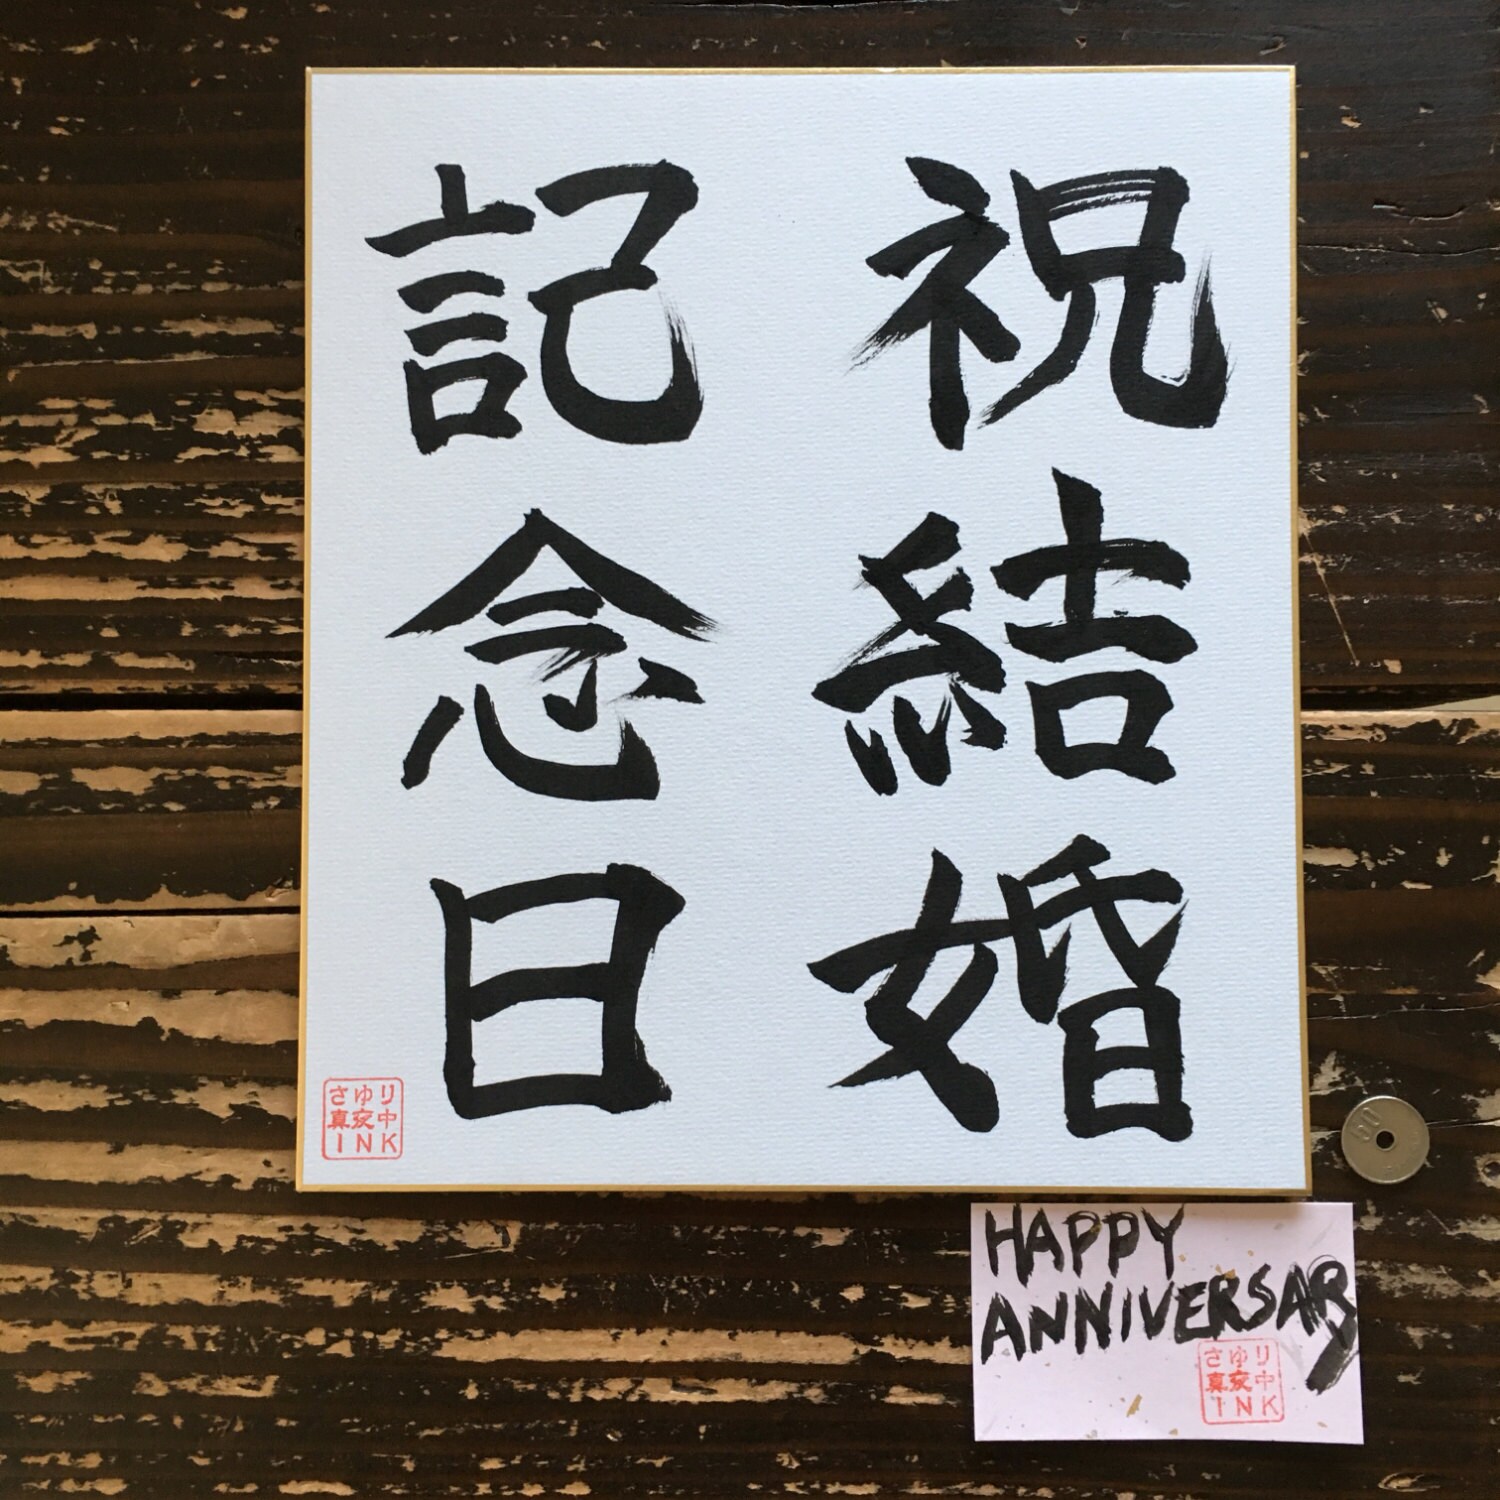 祝結婚
記念日
さゆり
真夜中
INK
HAPPY
ANNIVERSARY
さゆり
真夜中
INK
50